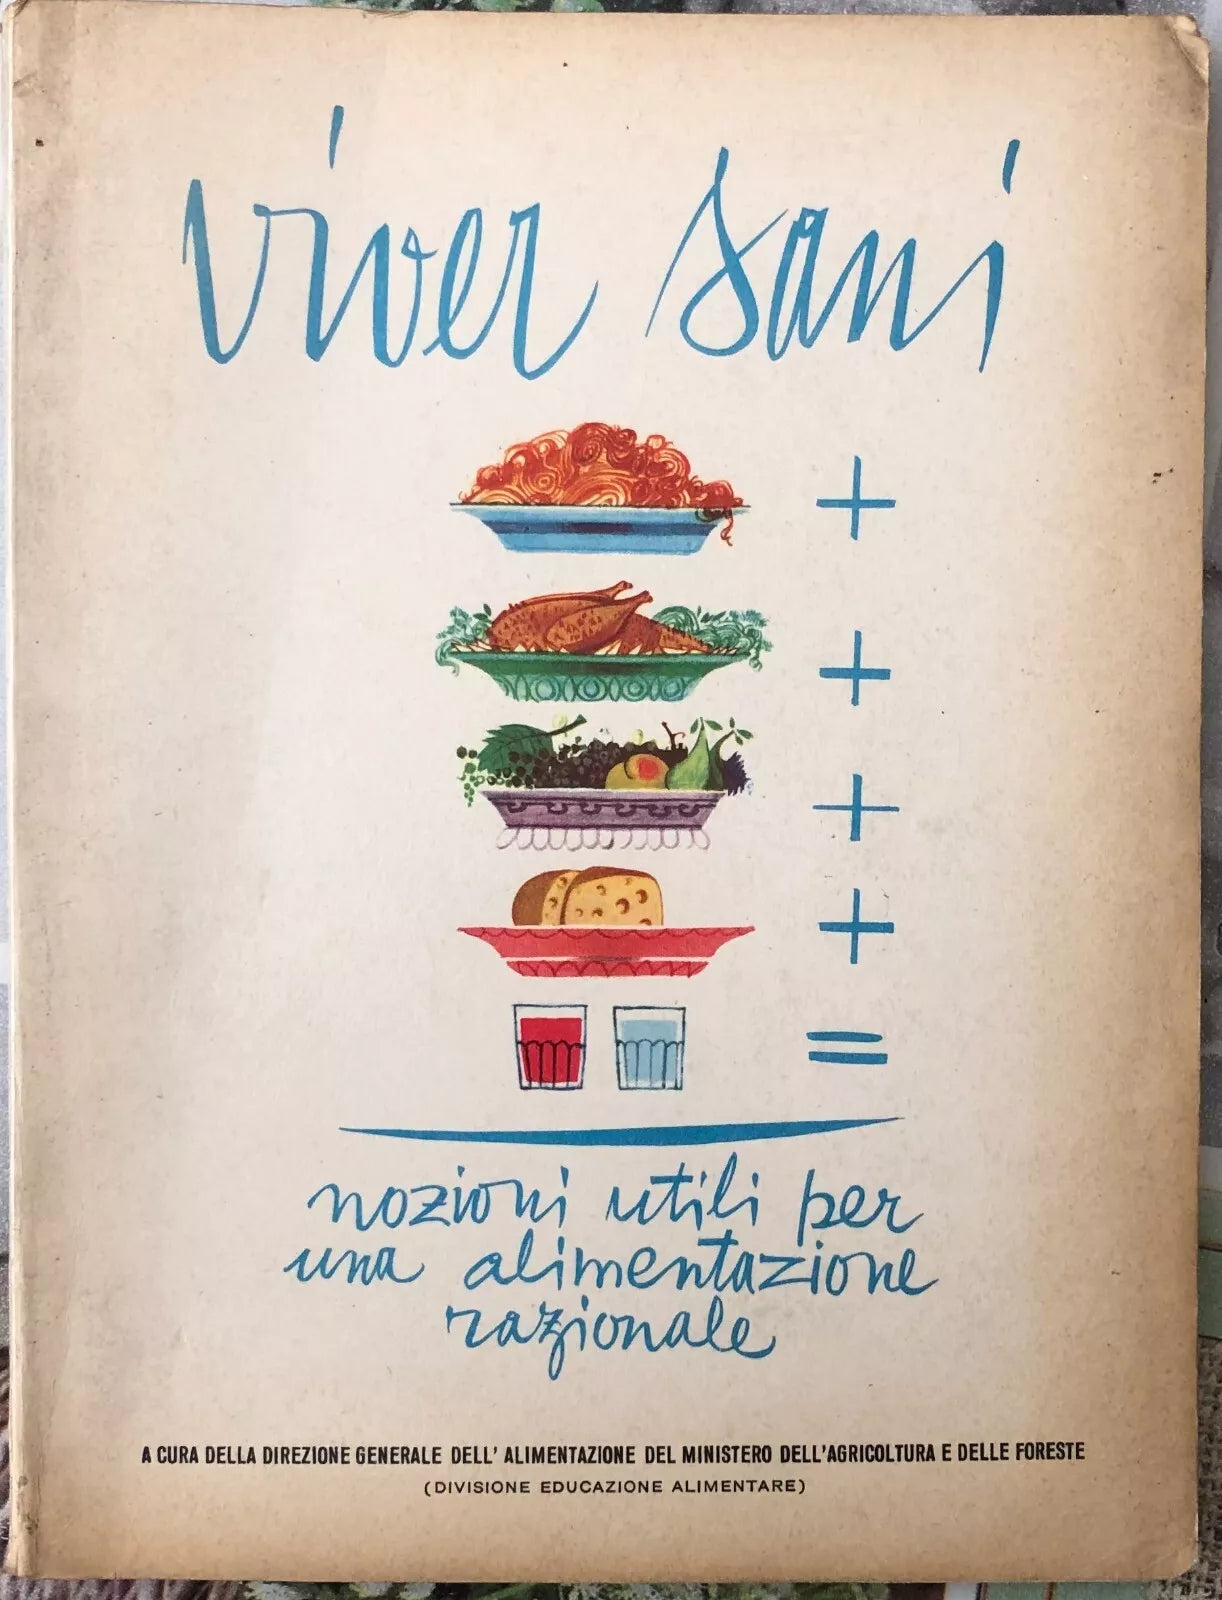 viver sani
+
+
+
+
=
nozioni utili per
una alimentazione
razionale
A CURA DELLA DIREZIONE GENERALE DELL' ALIMENTAZIONE DEL MINISTERO DELL'AGRICOLTURA E DELLE FORESTE
(DIVISIONE EDUCAZIONE ALIMENTARE)